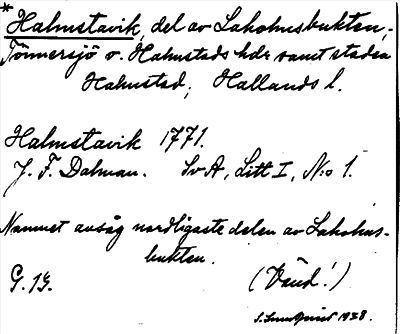 * Halmstavik, del av Laholmsbukten,
Tönnersjö o. Halmstads hdr samt staden
Halmstad, Hallands l.
Halmstavik 1771.
J. F. Dalman. SvA, Litt I, No 1.
Namnet avsåg nordligaste delen av Laholms-
bukten.
G. 13. (Vänd!)
S. Lundquist 1938.